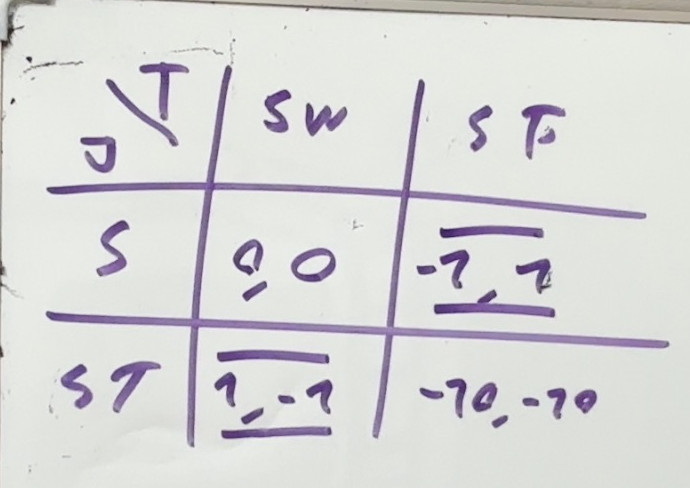 T SW ST
J
S 0,0 -1,1
ST 1,-1 -10,-10